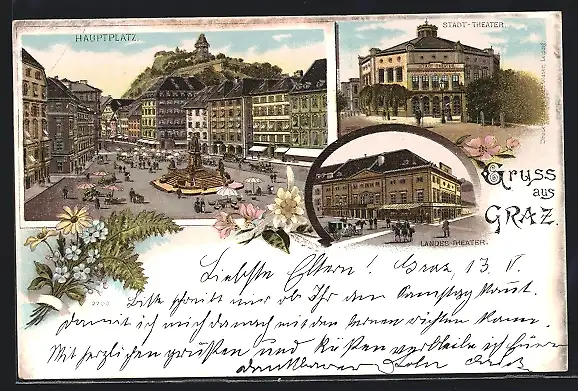 HAUPTPLATZ.
STADT-THEATER.
LANDES-THEATER.
Gruss
aus
GRAZ.
Liebste Eltern! Graz, 13. V.
Bitte schreibt mir ob Ihr den Samstag kommt.
damit ich mich danach mit den lernen richten kann.
Mit herzlichen Grüßen und Küßen verbleibe ich Euer
dankbarer Sohn